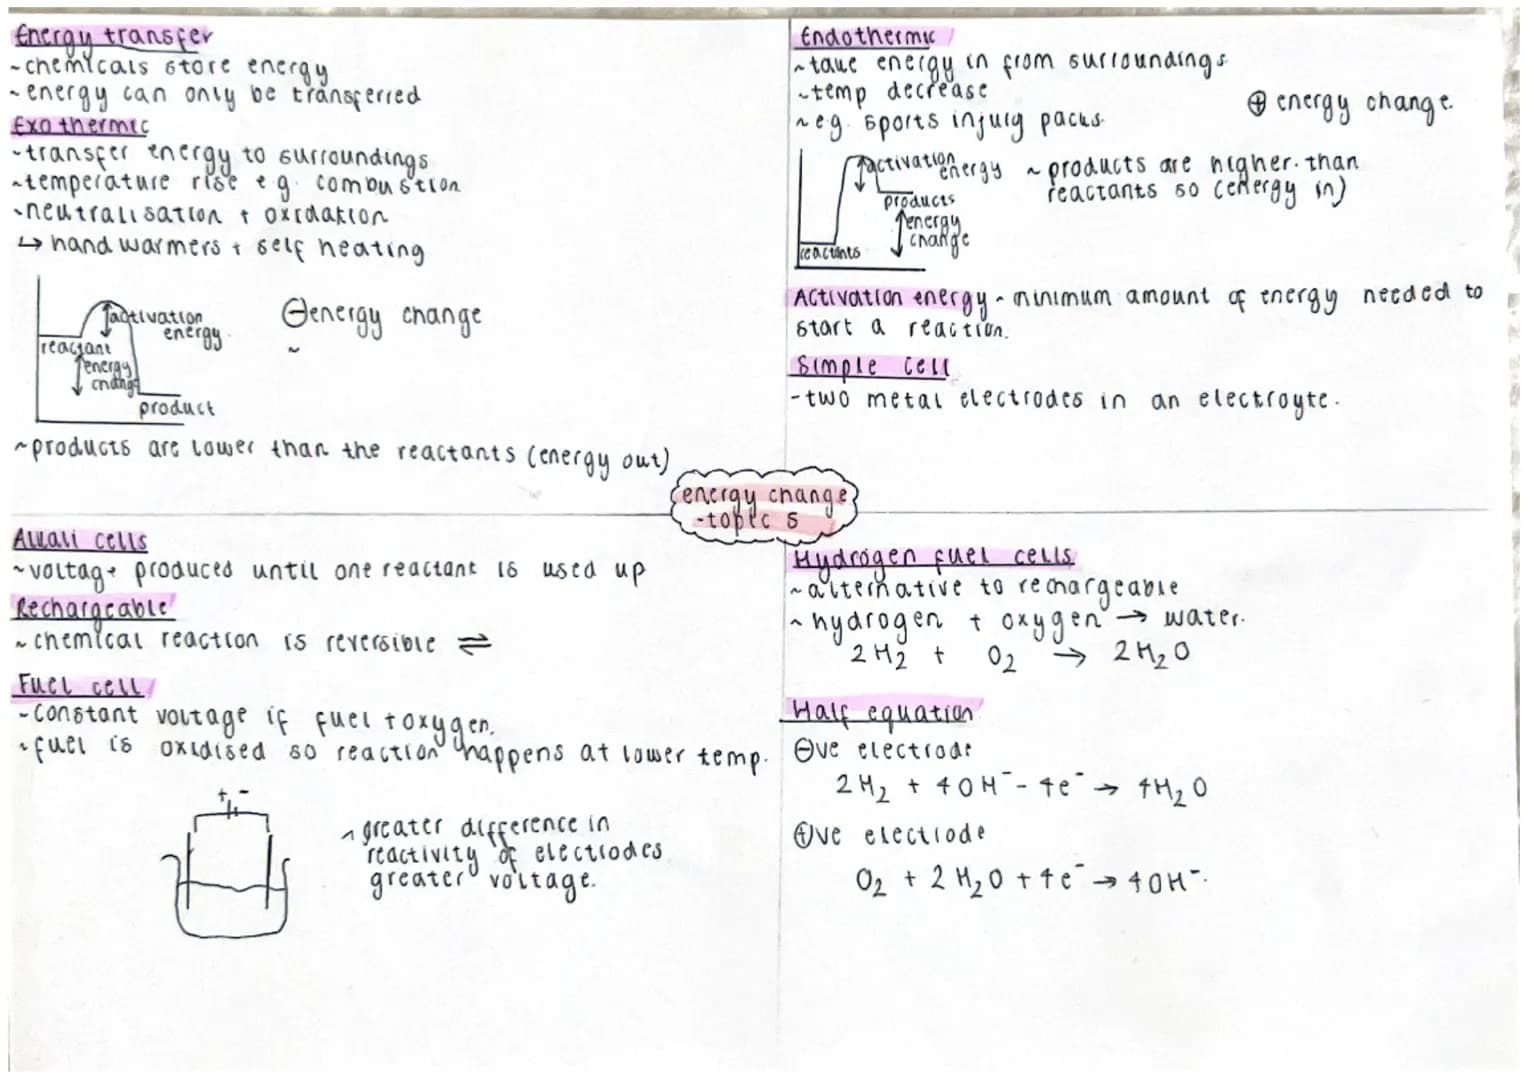 Energy transfer
~chemicals store energy
~energy can only be transferred
Exothermic
~transfer energy to surroundings
~temperature rise eg. combustion
~neutralisation + oxidation
↳ hand warmers + self heating
activation
energy
reactant
energy
change
product
⊖energy change
~
~products are lower than the reactants (energy out)
Endothermic
~take energy in from surroundings
~temp decrease
~eg. sports injury packs
⊕ energy change.
activation
energy
products
energy
change
reactants
~ products are higher than
reactants so (energy in)
Activation energy ~ minimum amount of energy needed to
start a reaction.
Simple cell
-two metal electrodes in an electroyte.
energy change
-topic 5
Alkali cells
~voltage produced until one reactant is used up
Rechargeable
~ chemical reaction is reversible ⇌
Fuel cell
~constant voltage if fuel + oxygen.
~fuel is oxidised so reaction happens at lower temp.
+ -
~ greater difference in
reactivity of electrodes
greater voltage.
Hydrogen fuel cells
~alternative to rechargeable
~ hydrogen + oxygen → water.
2H₂ + O₂ → 2H₂O
Half equation
⊖ve electrode
2H₂ + 4OH⁻ - 4e⁻ → 4H₂O
⊕ve electrode
O₂ + 2H₂O + 4e⁻ → 4OH⁻.